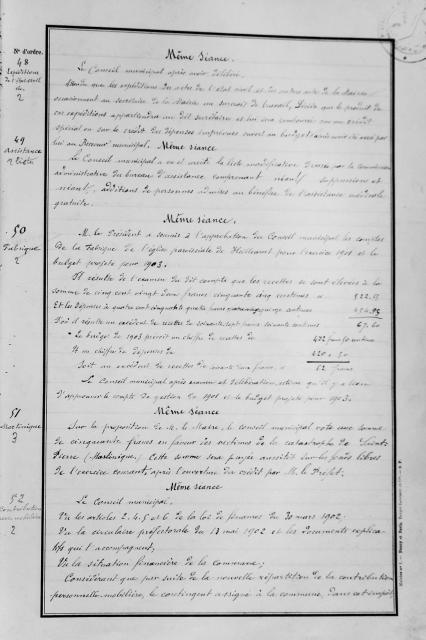 N° d'ordre.
48
Expéditions
de l'État civil
2
Même séance.
Le Conseil municipal après avoir délibéré.
Attendu que les expéditions des actes de l'état civil et des autres actes de la Mairie
occasionnent au secrétaire de la Mairie un surcroît de travail, Décide que le produit de
ces expéditions appartiendra au dit secrétaire et lui sera remboursé sur un crédit
spécial ou sur le crédit des dépenses imprévues ouvert au budget
lui au Receveur municipal. Même séance
49
Assistance
Liste
2
Le Conseil municipal a vu et arrêté la liste modificative dressée par la commission
administrative du bureau d'assistance comprenant néant suppressions et
néant additions de personnes admises au bénéfice de l'assistance médicale
gratuite.
Même séance.
50
Fabrique
2
M. le Président a soumis à l'approbation du Conseil municipal les comptes
de la Fabrique de l'église paroissiale de pour l'exercice 1901 et le
budget projeté pour 1903.
Il résulte de l'examen du dit compte que les recettes se sont élevées à la
somme de cinq cent vingt deux francs cinquante cinq centimes ci 522.55
Et les dépenses à quatre cent cinquante quatre francs quatre vingt quinze centimes 454.95
D'où il résulte un excédent de recettes de soixante sept francs soixante centimes 67.60
Le budget de 1903 prévoit un chiffre de recettes de 472 francs 50 centimes
Et un chiffre de dépenses de 420 " 50
Soit un excédent de recettes de cinquante deux francs, ci 52 francs
Le Conseil municipal après examen et délibération, estime qu'il y a lieu
d'approuver le compte de gestion de 1901 et le budget projeté pour 1903.
Même séance
51
Martinique
3
Sur la proposition de M. le Maire, le conseil municipal vote une somme
de cinquante francs en faveur des victimes de la catastrophe de Saint-
Pierre (Martinique). Cette somme sera payée aussitôt sur les fonds libres
de l'exercice courant, après l'ouverture du crédit par M. le Préfet.
Même séance
52
Contribution
mobilière
2
Le Conseil municipal.
Vu les articles 2, 4, 5 et 6 de la loi de finances du 30 mars 1902;
Vu la circulaire préfectorale du 13 mai 1902 et les documents explica-
tifs qui l'accompagnent;
Vu la situation financière de la commune;
Considérant que par suite de la nouvelle répartition de la contribution
personnelle-mobilière, le contingent assigné à la commune, dans cet impôt